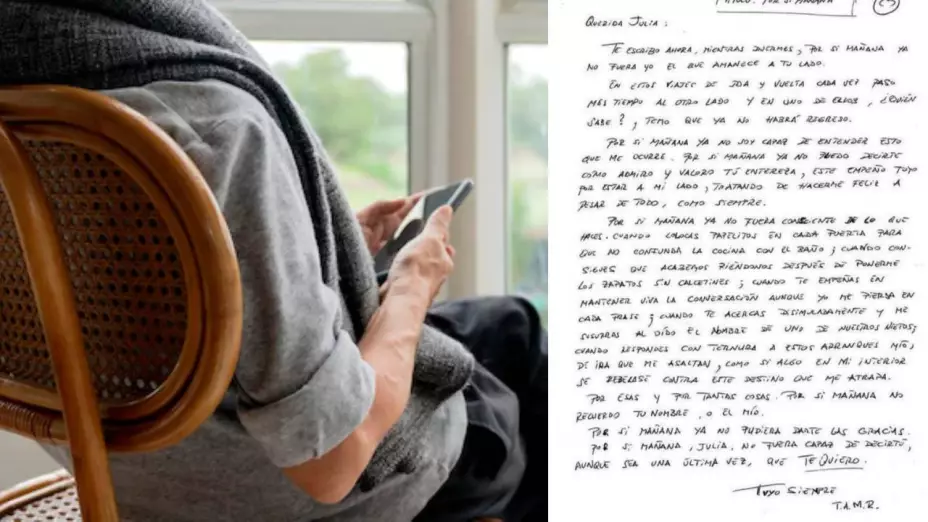 TÍTULO: POR SI MAÑANA
QUERIDA JULIA:
TE ESCRIBO AHORA, MIENTRAS DUERMES, POR SI MAÑANA YA
NO FUERA YO EL QUE AMANECE A TU LADO.
EN ESTOS VIAJES DE IDA Y VUELTA CADA VEZ PASO
MÁS TIEMPO AL OTRO LADO Y EN UNO DE ELLOS, ¿QUIÉN
SABE?, TEMO QUE YA NO HABRÁ REGRESO.
POR SI MAÑANA YA NO SOY CAPAZ DE ENTENDER ESTO
QUE ME OCURRE. POR SI MAÑANA YA NO PUEDO DECIRTE
CÓMO ADMIRO Y VALORO TU ENTEREZA, ESTE EMPEÑO TUYO
POR ESTAR A MI LADO, TRATANDO DE HACERME FELIZ A
PESAR DE TODO, COMO SIEMPRE.
POR SI MAÑANA YA NO FUERA CONSCIENTE DE LO QUE
HACES. CUANDO COLOCAS PAPELITOS EN CADA PUERTA PARA
QUE NO CONFUNDA LA COCINA CON EL BAÑO; CUANDO CON-
SIGUES QUE ACABEMOS RIÉNDONOS DESPUÉS DE PONERME
LOS ZAPATOS SIN CALCETINES; CUANDO TE EMPEÑAS EN
MANTENER VIVA LA CONVERSACIÓN AUNQUE YO ME PIERDA EN
CADA FRASE; CUANDO TE ACERCAS DISIMULADAMENTE Y ME
SUSURRAS AL OÍDO EL NOMBRE DE UNO DE NUESTROS NIETOS;
CUANDO RESPONDES CON TERNURA A ESTOS ARRANQUES MÍOS,
DE IRA QUE ME ASALTAN, COMO SI ALGO EN MI INTERIOR
SE REBELASE CONTRA ESTE DESTINO QUE ME ATRAPA.
POR ESAS Y POR TANTAS COSAS. POR SI MAÑANA NO
RECUERDO TU NOMBRE, O EL MÍO.
POR SI MAÑANA YA NO PUDIERA DARTE LAS GRACIAS.
POR SI MAÑANA, JULIA, NO FUERA CAPAZ DE DECIRTE,
AUNQUE SEA UNA ÚLTIMA VEZ, QUE TE QUIERO.
TUYO SIEMPRE
T.A.M.R.